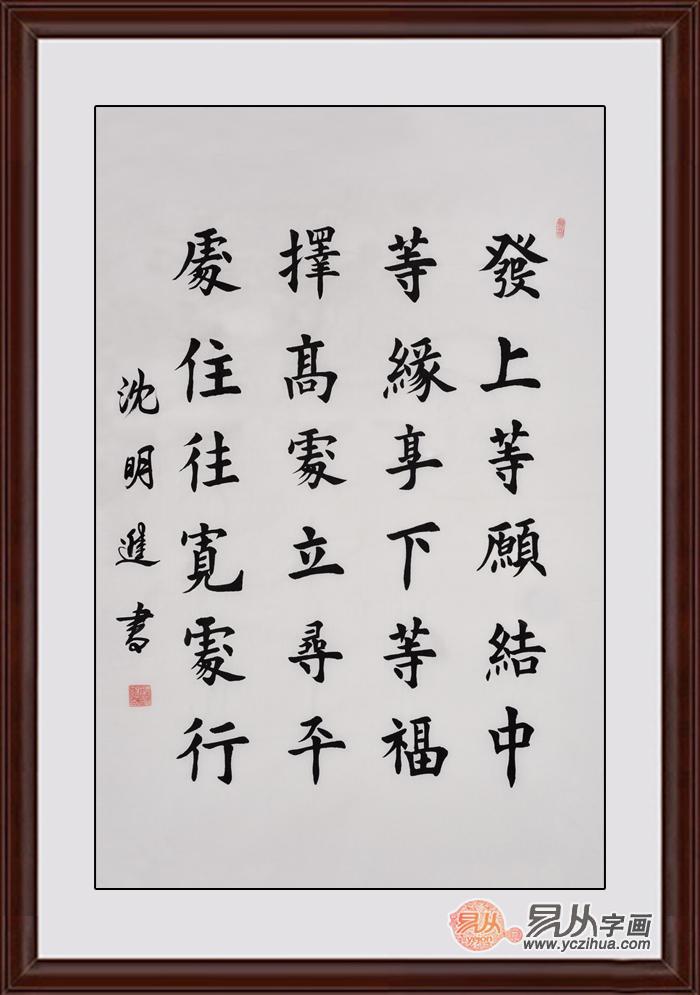 發上等願結中
等緣享下等福
擇髙處立尋平
處住往寬處行
沈明進書
易从
yicon
易从字画
www.yczihua.com